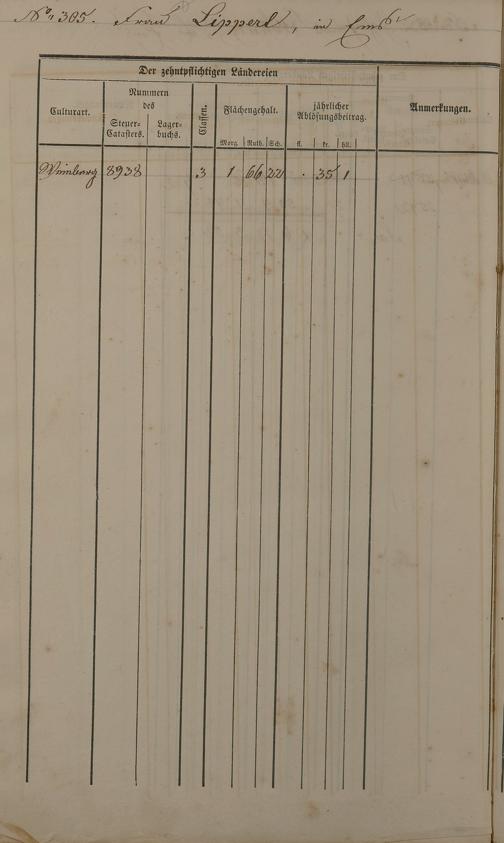 No. 305. Frau Lippert, in Ems
Der zehntpflichtigen Ländereien
Culturart.
Nummern
des
Steuer-
Catasters.
Lager-
buchs.
Classen.
Flächengehalt.
Morg. Ruth. Sch.
jährlicher
Ablösungsbeitrag.
fl. kr. hll.
Anmerkungen.
Weinberg 8938 3 1 66 22 . 35 1